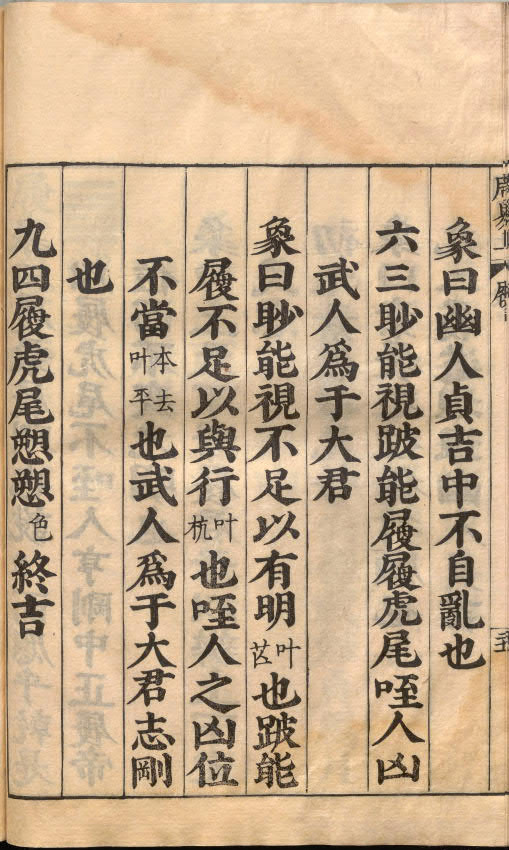 周易上 履
象曰幽人貞吉中不自亂也
六三眇能視跛能履履虎尾咥人凶
武人爲于大君
象曰眇能視不足以有明叶芒也跛能
履不足以與行叶杭也咥人之凶位
不當本去叶平也武人爲于大君志剛
也
九四履虎尾愬愬色終吉